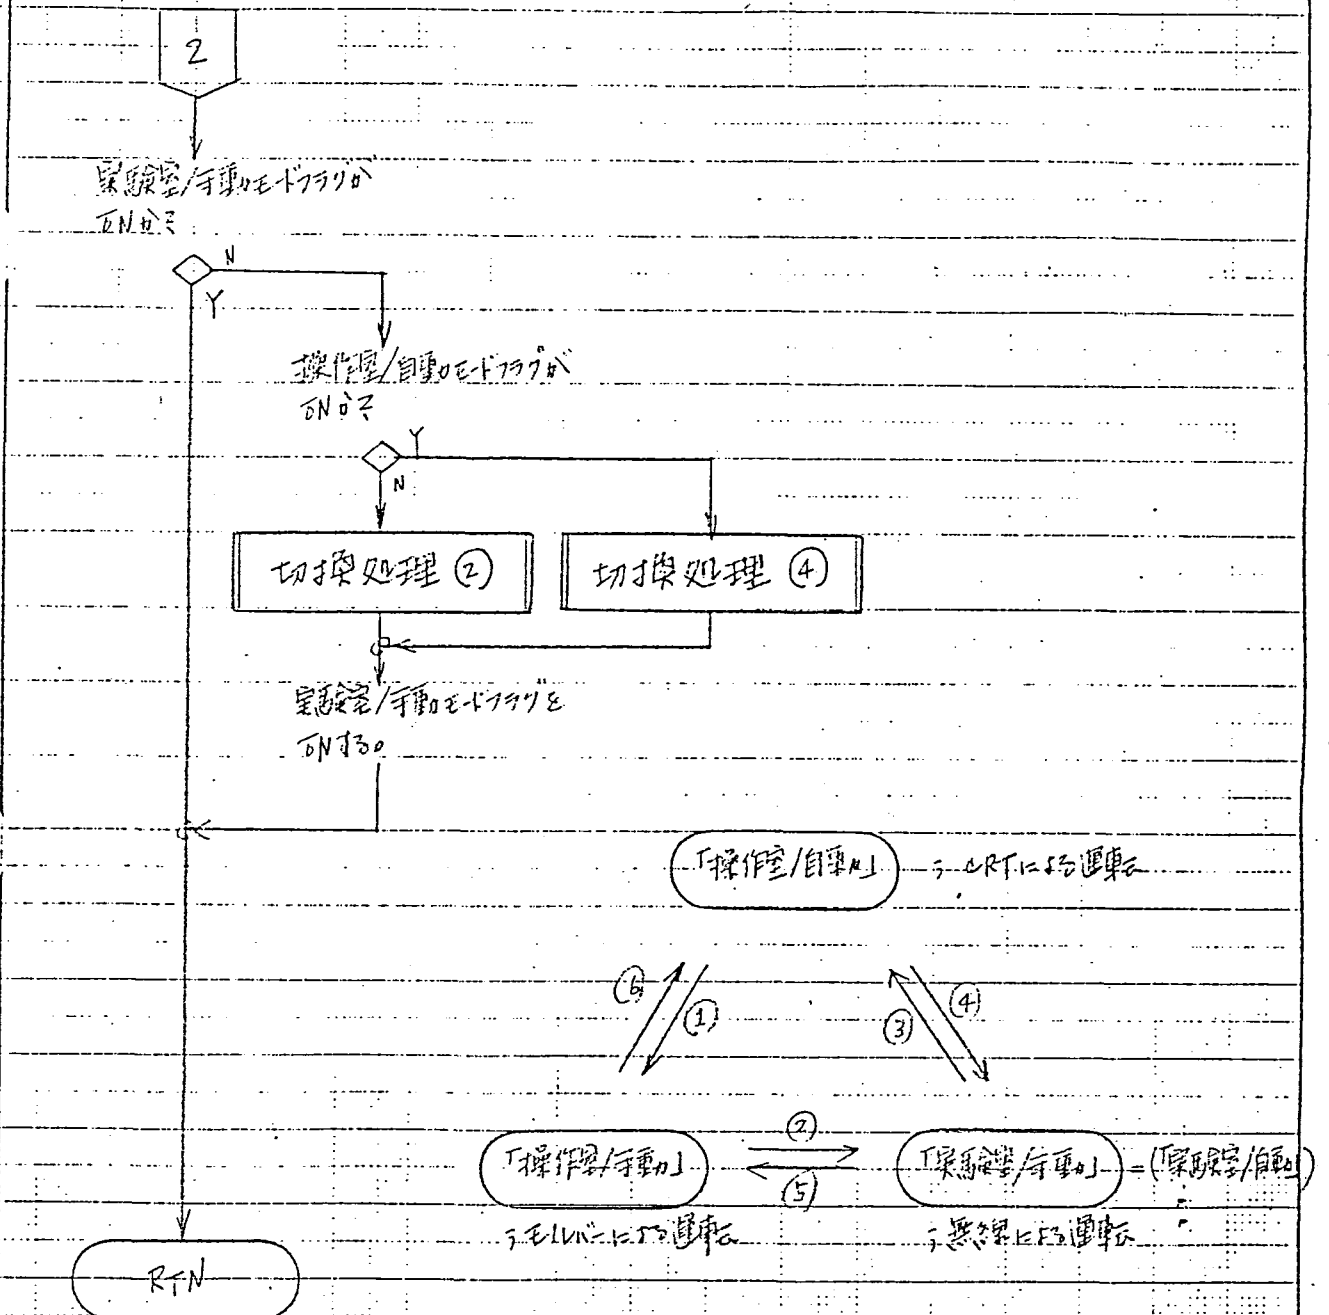 2
実験室/手動モードフラグが
ONか?
N
Y
操作室/自動モードフラグが
ONか?
Y
N
切換処理 ②
切換処理 ④
実験室/手動モードフラグを
ONする。
「操作室/自動」 ; CRTによる運転
⑥
①
③
④
②
⑤
「操作室/手動」
「実験室/手動」 = (「実験室/自動」)
; モノレバーによる運転
; 無線による運転
RTN